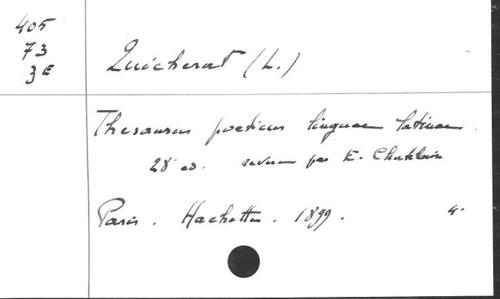 405
73
3E
Quicherat (L.)
Thesaurus poeticus linguae latinae.
28e ed. revue par E. Chatelain
Paris. Hachette. 1899. 4.